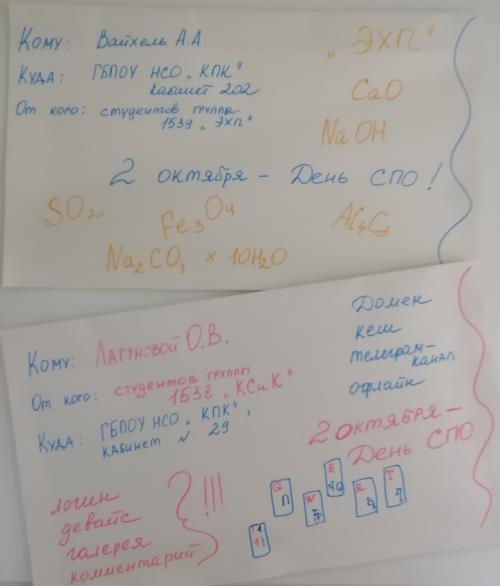 Кому: Вайхель А.А.
Куда: ГБПОУ НСО „КПК"
кабинет 202
От кого: студентов группы
1539 „ЭХП"
„ЭХП"
CaO
NaOH
2 октября – День СПО!
SO2
Fe3O4
Al4C3
Na2CO3 × 10H2O
Кому: Лагуновой О.В.
От кого: студентов группы
1538 „КСиК"
Куда: ГБПОУ НСО „КПК",
кабинет № 29
Домен
кеш
телеграм-
канал
офлайн
2 октября –
День СПО
логин
девайс
галерея
комментарий
!!!
Q
W
E
R
T